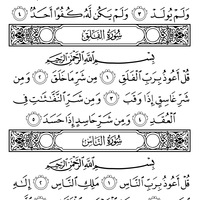 وَلَمْ يُولَدْ ٣ وَلَمْ يَكُن لَّهُۥ كُفُوًا أَحَدٌۢ ٤
سُورَةُ الفَلَقِ
بِسْمِ ٱللَّهِ ٱلرَّحْمَٰنِ ٱلرَّحِيمِ
قُلْ أَعُوذُ بِرَبِّ ٱلْفَلَقِ ١ مِن شَرِّ مَا خَلَقَ ٢ وَمِن
شَرِّ غَاسِقٍ إِذَا وَقَبَ ٣ وَمِن شَرِّ ٱلنَّفَّٰثَٰتِ فِى
ٱلْعُقَدِ ٤ وَمِن شَرِّ حَاسِدٍ إِذَا حَسَدَ ٥
سُورَةُ النَّاسِ
بِسْمِ ٱللَّهِ ٱلرَّحْمَٰنِ ٱلرَّحِيمِ
قُلْ أَعُوذُ بِرَبِّ ٱلنَّاسِ ١ مَلِكِ ٱلنَّاسِ ٢ إِلَٰهِ